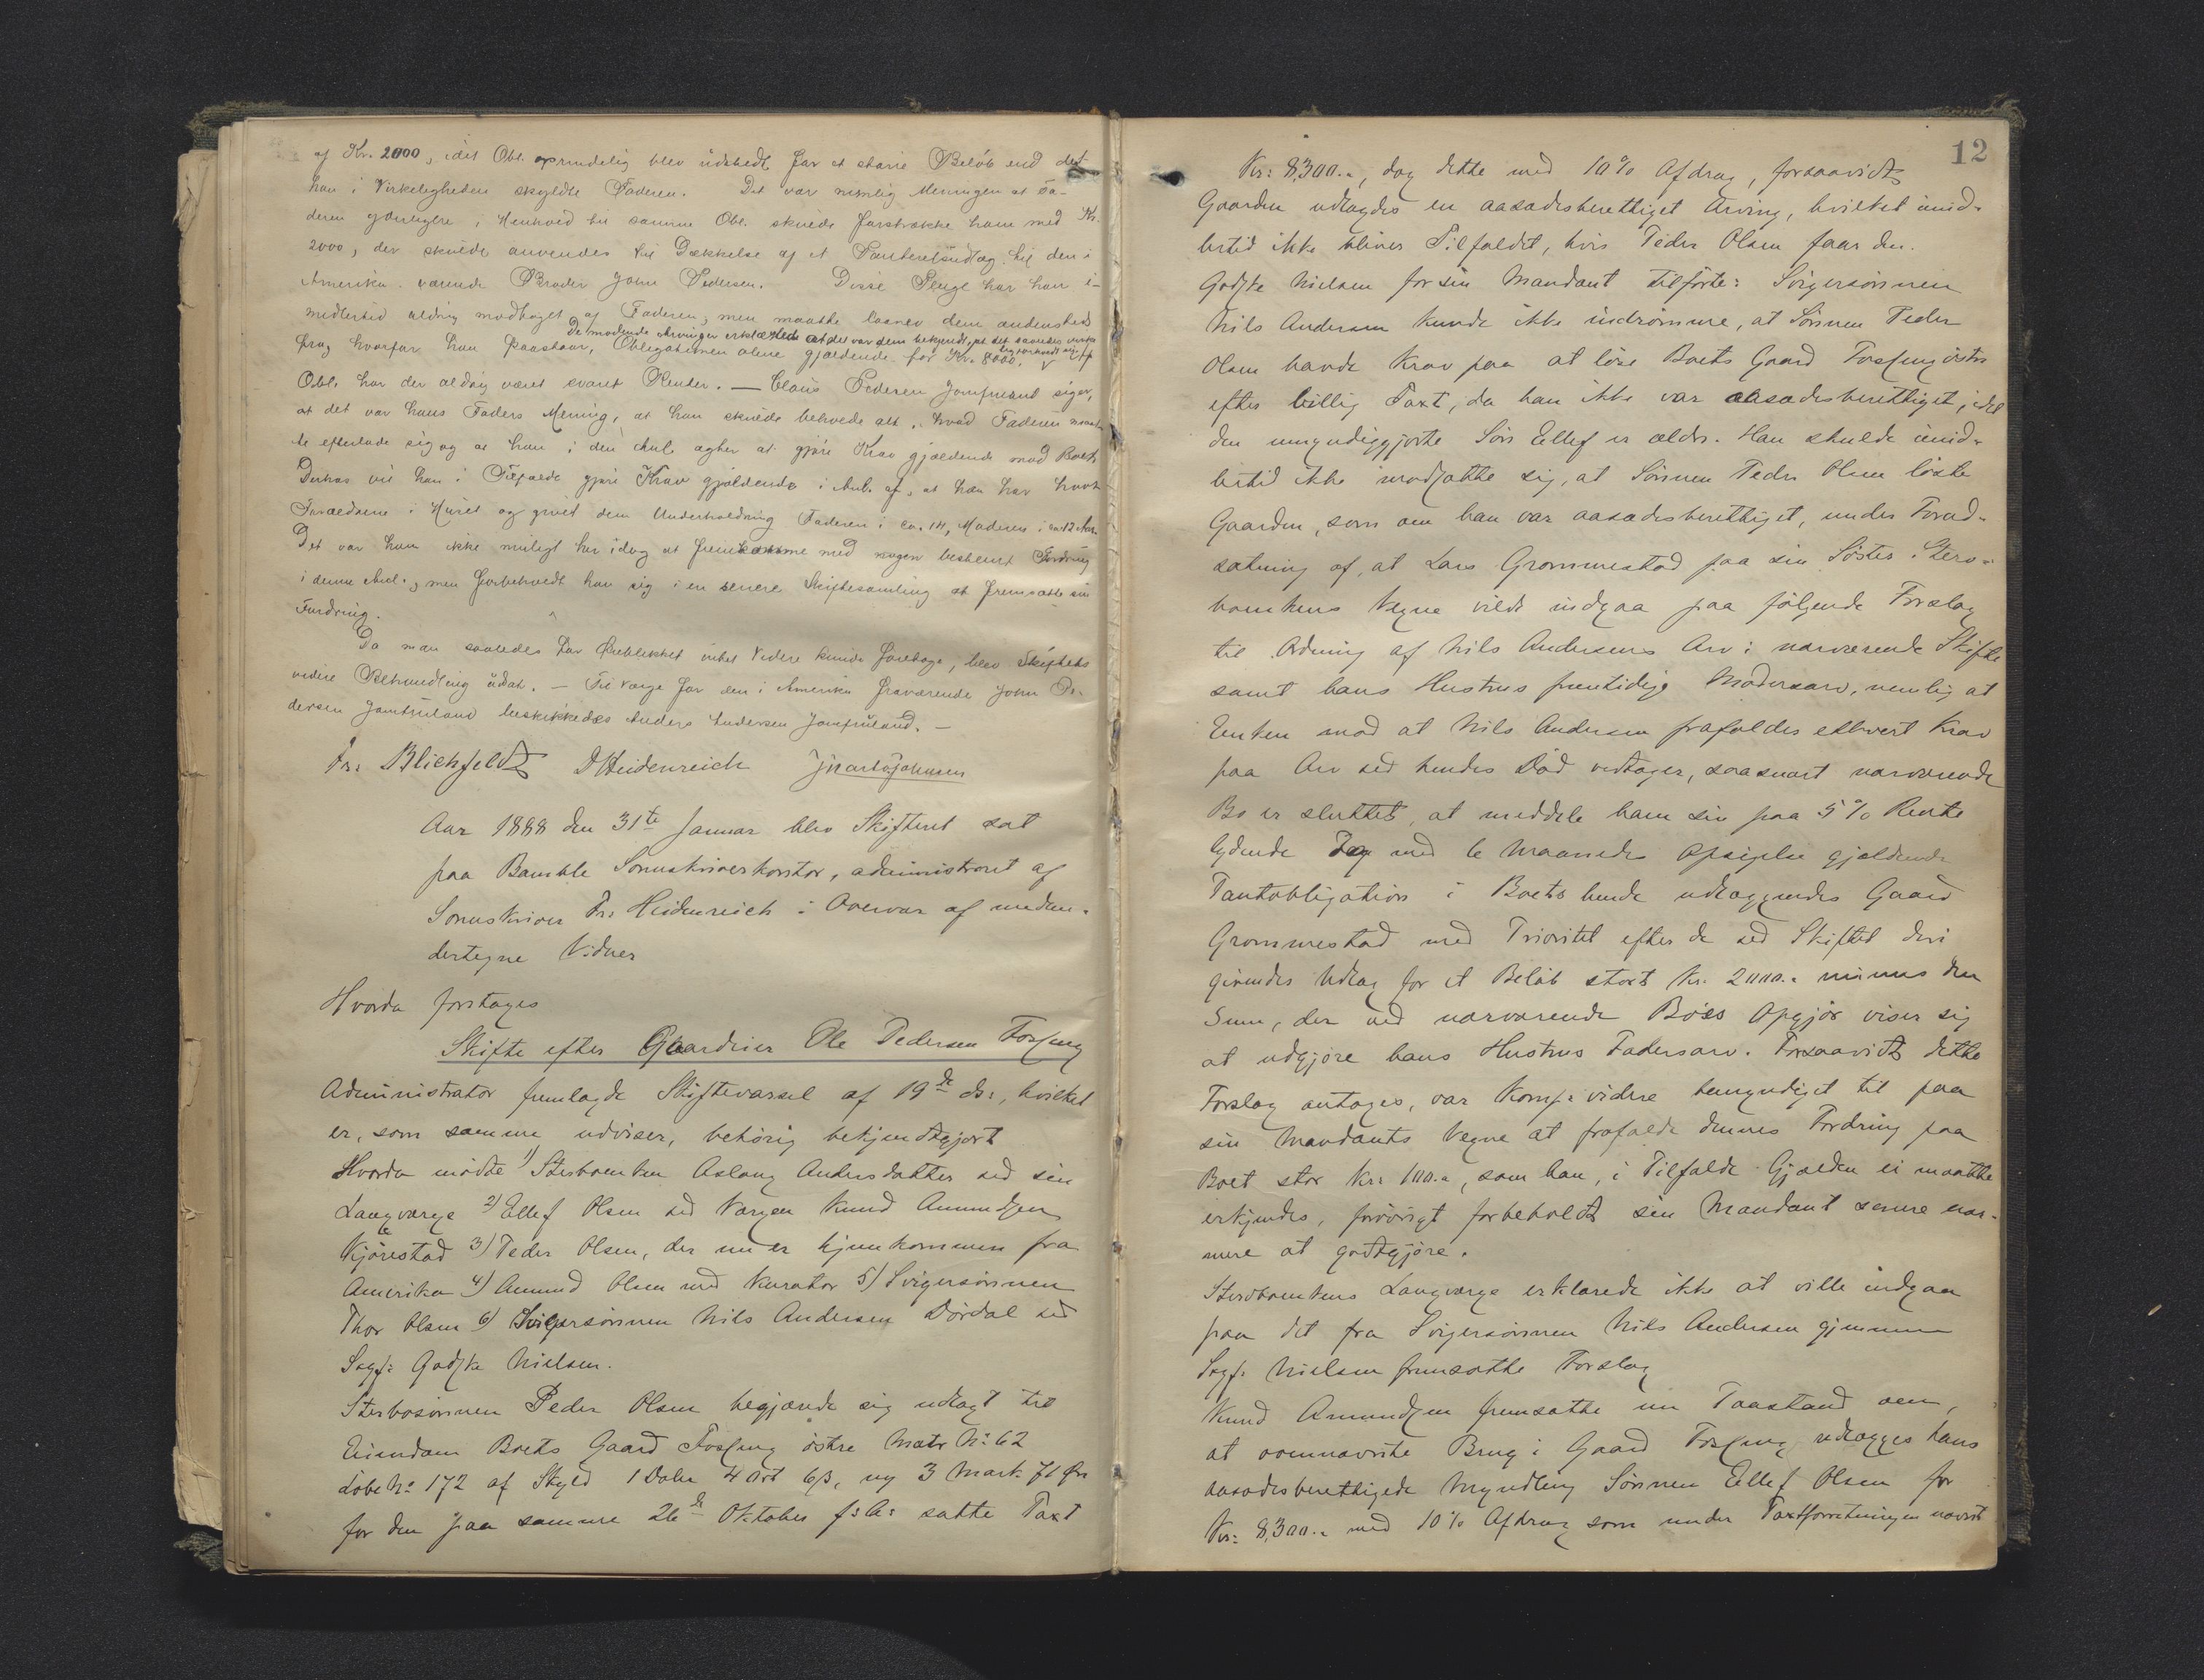 af Kr. 2000, idet Obl. oprindelig blev udstedt for et større Beløb end det
han i Virkeligheden skyldte Faderen. Det var nemlig Meningen at Fa-
deren yderligere i Henhold til samme Obl. skulde forstrække ham med Kr.
2000, der skulde anvendes til Dækkelse af et til den i
Amerika værende Broder John Pedersen. Disse Penge har han i-
midlertid aldrig modtaget af Faderen, men maatte laane dem andensteds
De mødende Arvinger erklærede at det var dem bekjendt, at det saaledes
fra, hvorfor han paastaar, Obligationen alene gjældende for Kr. 8000.
Obl. har der aldrig været svaret Renter. — Claus Pedersen Jomfruland siger,
at det var hans Faders Mening, at han skulde beholde alt, hvad Faderen maat-
te efterlade sig og at han i den Anl. agter at gjøre Krav gjældende mod Boet.
Derhos vil han i Tilfælde gjøre Krav gjældende i Anl. af, at han har havt
Forældrene i Huset og givet dem Underholdning Faderen i ca. 14, Moderen i ca 12 Aar.
Det var ham ikke muligt her idag at fremkomme med nogen bestemt Fordring
i denne Anl., men forbeholdt han sig i en senere Skiftesamling at fremsætte sin
Fordring.
Da man saaledes for Øieblikket intet Videre kunde foretage, blev Skiftets
videre Behandling udsat. — Til Værge for den i Amerika fraværende John Pe-
dersen Jomfruland beskikkedes Anders Andersen Jomfruland. —
Fr: Blichfeldt D Heidenreich
Aar 1888 den 31te Januar blev Skifteret sat
paa Bamble Sorenskriverkontor, administreret af
Sorenskriver Fr: Heidenreich i Overvær af under-
tegne Vidner
Hvorda foretoges
Skifte efter Gaardeier Ole Pedersen Fossing
Administrator fremlagde Skiftevarsel af 19de ds:, hvilket
er, som samme udviser, behørig bekjendtgjort
Hvorda mødte 1) Sterboenken Aslaug Andersdatter ved sin
Laugværge 2) Ellef Olsen ved Værgen Knud Amundsen
Kjørestad 3) Peder Olsen, der nu er hjemkommen fra
Amerika 4) Amund Olsen med Kurator 5) Svigersønnen
Thor Olsen 6) Svigersønnen Nils Andersen Dørdal ved
Sagf: Godske Nielsen.
Sterbosønnen Peder Olsen begjærede sig udlagt til
Eiendom Boets Gaard Fossing østre Matr No 62
Løbe No 172 af Skyld 1 Daler 4 Ort 6 β, ny 3 Mark 71 Øre
for den paa samme 26de Oktober f: A: satte Taxt
12
Kr: 8,300.-, dog dette med 10% Afdrag, forsaavidt
Gaarden udlagdes en aasædesberettiget Arving, hvilket imid-
lertid ikke bliver Tilfældet, hvis Peder Olsen faar den.
Godske Nielsen for sin Mandant tilførte: Svigersønnen
Nils Andersen kunde ikke indrømme, at Sønnen Peder
Olsen havde Krav paa at løse Boets Gaard Fossing østre
efter billig Taxt, da han ikke var aasædesberettiget, idet
den umyndiggjorte Søn Ellef er ældre. Han skulde imid-
lertid ikke modsætte sig, at Sønnen Peder Olsen løste
Gaarden, som om han var aasædesberettiget, under Forud-
sætning af, at Lars Grommestad paa sin Søster Ster-
boenkens Vegne vilde indgaa paa følgende Forslag
til Ordning af Nils Andersens Arv i nærværende Skifte
samt hans Hustrus fremtidige Mødrearv, nemlig at
Enken mod at Nils Andersen frafalder ethvert Krav
paa Arv ved hendes Død vedtager, saasnart nærværende
Bo er sluttet, at meddele ham sin paa 5% Rente
lydende og med 6 Maaneders Opsigelse gjældende
Pantobligation i Boets hende udlæggendes Gaard
Grommestad med Prioritet efter de ved Skiftet deri
givendes Udlæg for et Beløb stort Kr: 2000.- minus den
Sum, der ved nærværende Boes Opgjør viser sig
at udgjøre hans Hustrus Fadersarv. Forsaavidt dette
Forslag antages, var Komp: videre bemyndiget til paa
sin Mandants Vegne at frafalde dennes Fordring paa
Boet stor Kr: 100.-, som han, i Tilfælde Gjælden ei maatte
erkjendes, forøvrigt forbeholdt sin Mandant senere nær-
mere at godtgjøre.
Sterboenkens Laugværge erklærede ikke at ville indgaa
paa det fra Svigersønnen Nils Andersen gjennem
Sagf: Nielsen fremsatte Forslag
Knud Amundsen fremsatte nu Paastand om,
at oomnævnte Brug i Gaard Fossing udlægges hans
aasædesberettigede Myndling Sønnen Ellef Olsen for
Kr: 8,300.- med 10% Afdrag som under Taxtforretningen nævnt